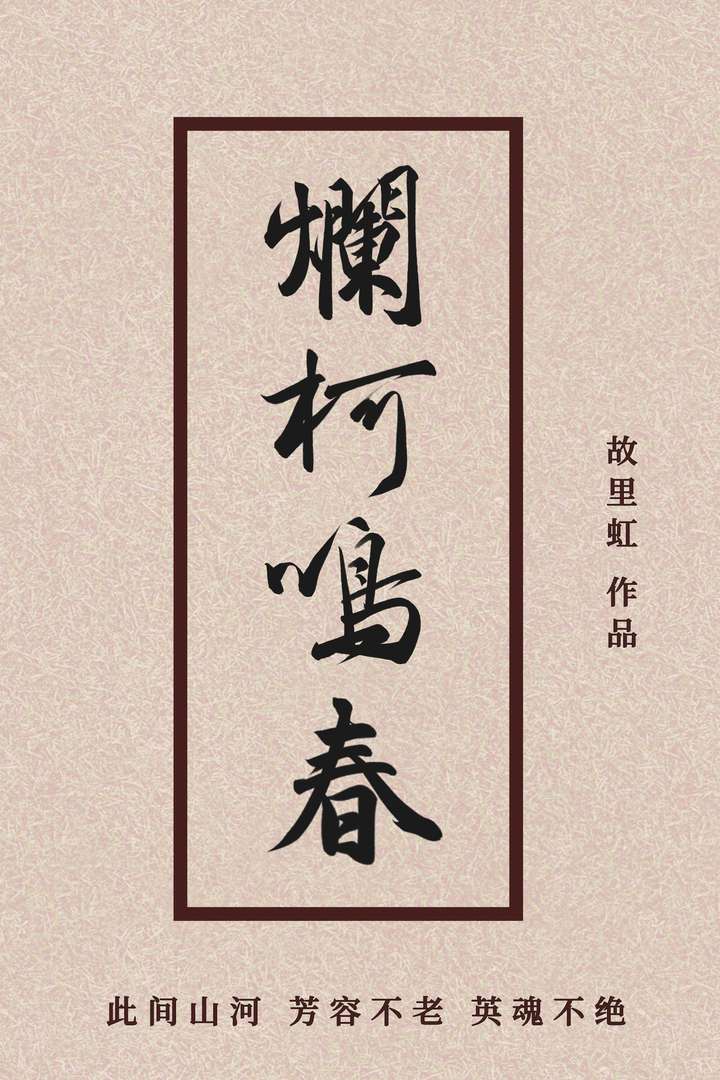 爛柯鳴春
故里虹 作品
此间山河 芳容不老 英魂不绝